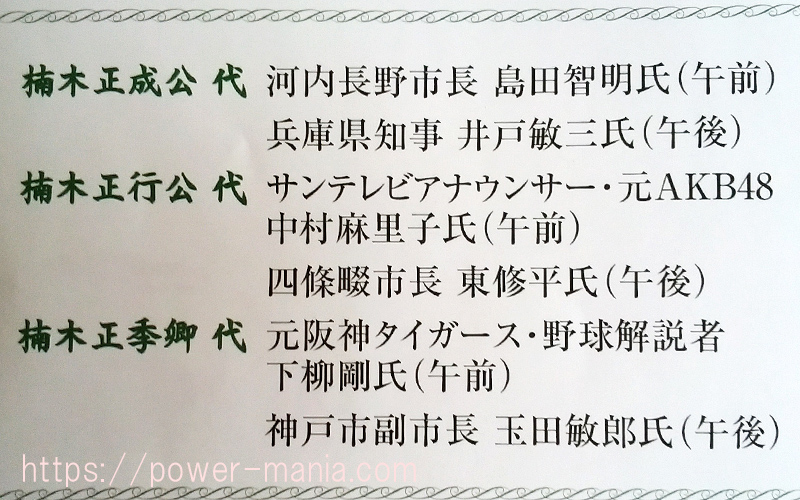 楠木正成公 代 河内長野市長 島田智明氏(午前)
兵庫県知事 井戸敏三氏(午後)
楠木正行公 代 サンテレビアナウンサー・元AKB48
中村麻里子氏(午前)
四條畷市長 東修平氏(午後)
楠木正季卿 代 元阪神タイガース・野球解説者
下柳剛氏(午前)
神戸市副市長 玉田敏郎氏(午後)
https://power-mania.com